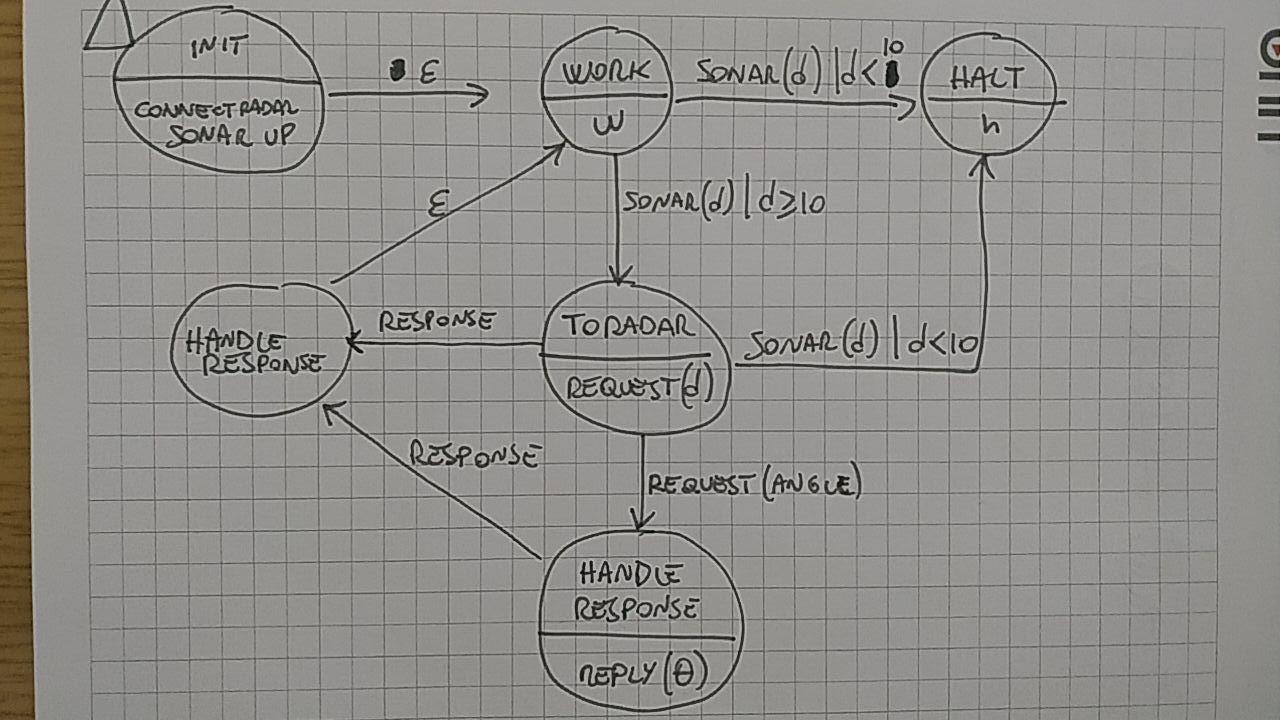 INIT
CONNECTRADAR
SONAR UP
ε
WORK
w
SONAR(d) | d < 10
HALT
h
ε
SONAR(d) | d ≥ 10
HANDLE
RESPONSE
RESPONSE
TORADAR
REQUEST(d)
SONAR(d) | d < 10
RESPONSE
REQUEST(ANGLE)
HANDLE
RESPONSE
REPLY(θ)